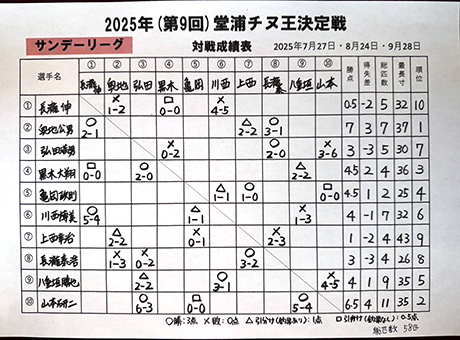 2025年(第9回)堂浦チヌ王決定戦
サンデーリーグ 対戦成績表 2025年7月27日・8月24日・9月28日
選手名 ① ② ③ ④ ⑤ ⑥ ⑦ ⑧ ⑨ ⑩ 勝点 得失差 総匹数 最長寸 順位
弘田 黒木 亀岡 川西 上西 山本
① 長瀧 伸 ×1-2 □0-0 ×4-5 0.5 -2 5 32 10
② ○2-1 △2-2 ○3-1 7 3 7 37 1
③ 弘田 ×0-2 ○2-0 ×3-6 3 -3 5 30 7
④ 黒木大翔 □0-0 ○2-0 △2-2 4.5 2 4 36 3
⑤ 亀岡政則 △1-1 ○1-0 □0-0 4.5 1 2 25 4
⑥ 川西 ○5-4 △1-1 ×1-3 4 -1 7 32 6
⑦ 上西 △2-2 ×0-1 ×2-3 1 -2 4 43 9
⑧ 長瀧 ×1-3 ×0-2 ○3-2 3 -3 4 26 8
⑨ △2-2 ○3-1 ×4-5 4 1 9 35 5
⑩ 山本 ○6-3 □0-0 ○5-4 6.5 4 11 35 2
○勝:3点 ×敗:0点 △引分け(釣果あり):1点 □引分け(釣果なし):0.5点
総匹数 58匹